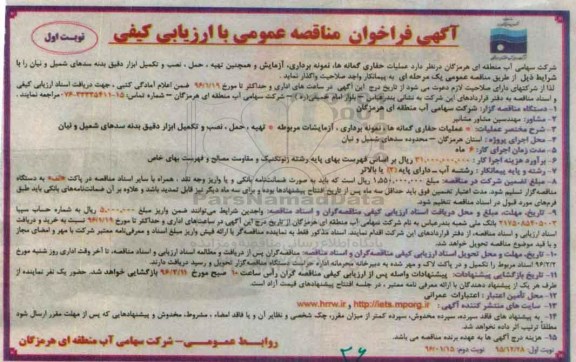 آگهی فراخوان مناقصه عمومی با ارزیابی کیفی
نوبت اول
شرکت سهامی آب منطقه ای هرمزگان درنظر دارد عملیات حفاری گمانه ها، نمونه برداری، آزمایش و همچنین تهیه ، حمل ، نصب و تکمیل ابزار دقیق بدنه سدهای شمیل و نیان را با
شرایط ذیل از طریق مناقصه عمومی یک مرحله ای به پیمانکار واجد صلاحیت واگذار نماید.
لذا از شرکتهای دارای صلاحیت لازم دعوت می شود از تاریخ درج این آگهی در ساعت های اداری و حداکثر تا مورخ ۹۶/۱/۱۹ ضمن اعلام آمادگی کتبی ، جهت دریافت اسناد ارزیابی کیفی
و اسناد مناقصه به دفتر قراردادهای این شرکت به نشانی بندرعباس – بلوار امام خمینی(ره) – شرکت سهامی آب منطقه ای هرمزگان – شماره تماس: ۱۵-۳۳۳۳۵۶۱۱-۰۷۶ مراجعه نمایند .
۱- دستگاه مناقصه گزار: شرکت سهامی آب منطقه ای هرمزگان
۲- مشاور: مهندسین مشاور مشانیر
۳- شرح مختصر عملیات: عملیات حفاری گمانه ها ، نمونه برداری ، آزمایشات مربوطه تهیه ، حمل ، نصب و تکمیل ابزار دقیق بدنه سدهای شمیل و نیان
۴- محل اجرای پروژه : استان هرمزگان – محدوده سدهای شمیل و نیان
۵- مدت زمان اجرای کار: ۶ ماه
۶- برآورد هزینه اجرا کار : ۳۱.۰۰۰.۰۰۰.۰۰۰ ریال بر اساس فهرست بهای پایه رشته ژئوتکنیک و مقاومت مصالح و فهرست بهای خاص
۷- رشته و پایه پیمانکار : رشته آب ـ دارای پایه (۲) یا بالاتر
۸- مبلغ تضمین شرکت در مناقصه: مبلغ ۱.۵۵۰.۰۰۰.۰۰۰ ریال است که باید به صورت ضمانتنامه بانکی و یا واریز وجه نقد ، همراه با سایر اسناد مناقصه در پاکت «الف» به دستگاه
مناقصه گزار تسلیم شود. مدت اعتبار تضمین فوق باید حداقل سه ماه پس از تاریخ افتتاح پیشنهادها بوده و برای سه ماه دیگر نیز قابل تمدید باشد و علاوه بر آن ضمانتنامه‌های بانکی باید طبق
فرم‌های مورد قبول در اسناد مناقصه تنظیم شود.
۹- تاریخ، مهلت، مبلغ و محل دریافت اسناد ارزیابی کیفی مناقصه‌گران و اسناد مناقصه: واجدین شرایط می‌توانند ضمن واریز مبلغ ۵۰۰.۰۰۰ ریال به شماره حساب سیبا
بانک ملی شعبه بندرعباس به نام شرکت سهامی آب منطقه ای هرمزگان از تاریخ درج آگهی در ساعت‌های اداری و حداکثر تا مورخ ۹۶/۱/۱۹ نسبت به خرید و دریافت
اسناد ارزیابی کیفی و اسناد مناقصه، از دفتر قراردادهای این شرکت اقدام نمایند. اسناد مذکور فقط به نماینده مناقصه‌گر با ارائه فیش واریز مبلغ اسناد و معرفی‌نامه معتبر شرکت با مهر و امضای مجاز
و با قید موضوع مناقصه تحویل خواهد شد.
۱۰- تاریخ، مهلت و محل تحویل اسناد ارزیابی کیفی مناقصه‌گران و اسناد مناقصه: مناقصه‌گران پس از دریافت و مطالعه اسناد ارزیابی و اسناد مناقصه، تا آخر وقت اداری روز شنبه مورخ
۹۶/۲/۲ اسناد مربوط را تکمیل و در پاکت لاک و مهر شده به دبیرخانه محرمانه اداره حراست دستگاه مناقصه‌گزار تحویل و رسید دریافت دارند.
۱۱- تاریخ بازگشایی پیشنهادات: پیشنهادات واصله پس از ارزیابی کیفی مناقصه گران رأس ساعت ۱۰ صبح مورخ ۹۶/۲/۱۱ بازگشایی خواهد شد. حضور یک نفر نماینده از
طرف هر یک از پیشنهاد دهندگان با ارائه معرفی نامه معتبر ، در جلسه افتتاح پیشنهادهای قیمت آزاد است.
۱۲- محل تأمین اعتبار : اعتبارات عمرانی
۱۳- سایت های منتشر کننده آگهی: http://iets.mporg.ir و www.hrrw.ir
۱۴- به پیشنهاد های فاقد سپرده، سپرده مخدوش، سپرده کمتر از میزان مقرر، چک شخصی و نظایر آن و یا فاقد امضا ، مشروط، مخدوش و پیشنهادهایی که پس از مهلت مقرر ارسال شود
مطلقاً ترتیب اثر داده نخواهد شد.
۱۵- هزینه درج آگهی ها به عهده برنده مناقصه می باشد.
نوبت اول: ۹۵/۱۲/۲۸ نوبت دوم: ۹۶/۰۱/۱۵
روابط عمومی– شرکت سهامی آب منطقه ای هرمزگان
ParsNamadData